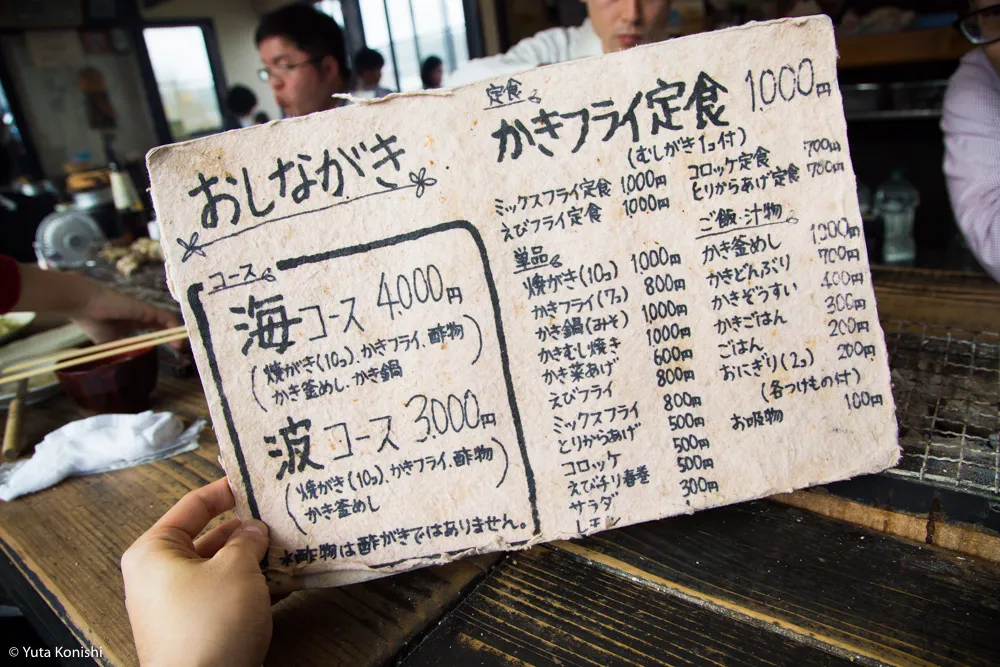 おしながき
コース
海コース 4000円
(焼がき(10コ)、かきフライ、酢物
かき釜めし、かき鍋)
波コース 3,000円
(焼がき(10コ)、かきフライ、酢物
かき釜めし)
*酢物は酢がきではありません。
定食
かきフライ定食 1000円
(むしがき1コ付)
ミックスフライ定食 1000円
えびフライ定食 1000円
コロッケ定食 700円
とりからあげ定食 700円
単品
焼がき(10コ) 1000円
かきフライ(7コ) 800円
かき鍋(みそ) 1000円
かきむし焼き 1000円
かき葉あげ 600円
えびフライ 800円
ミックスフライ 800円
とりからあげ 500円
コロッケ 500円
えびチリ春巻 500円
サラダ 300円
レモン
ご飯・汁物
かき釜めし 1000円
かきどんぶり 700円
かきぞうすい 400円
かきごはん 300円
ごはん 200円
おにぎり(2コ) 200円
(各つけもの付)
お吸物 100円
© Yuta Konishi